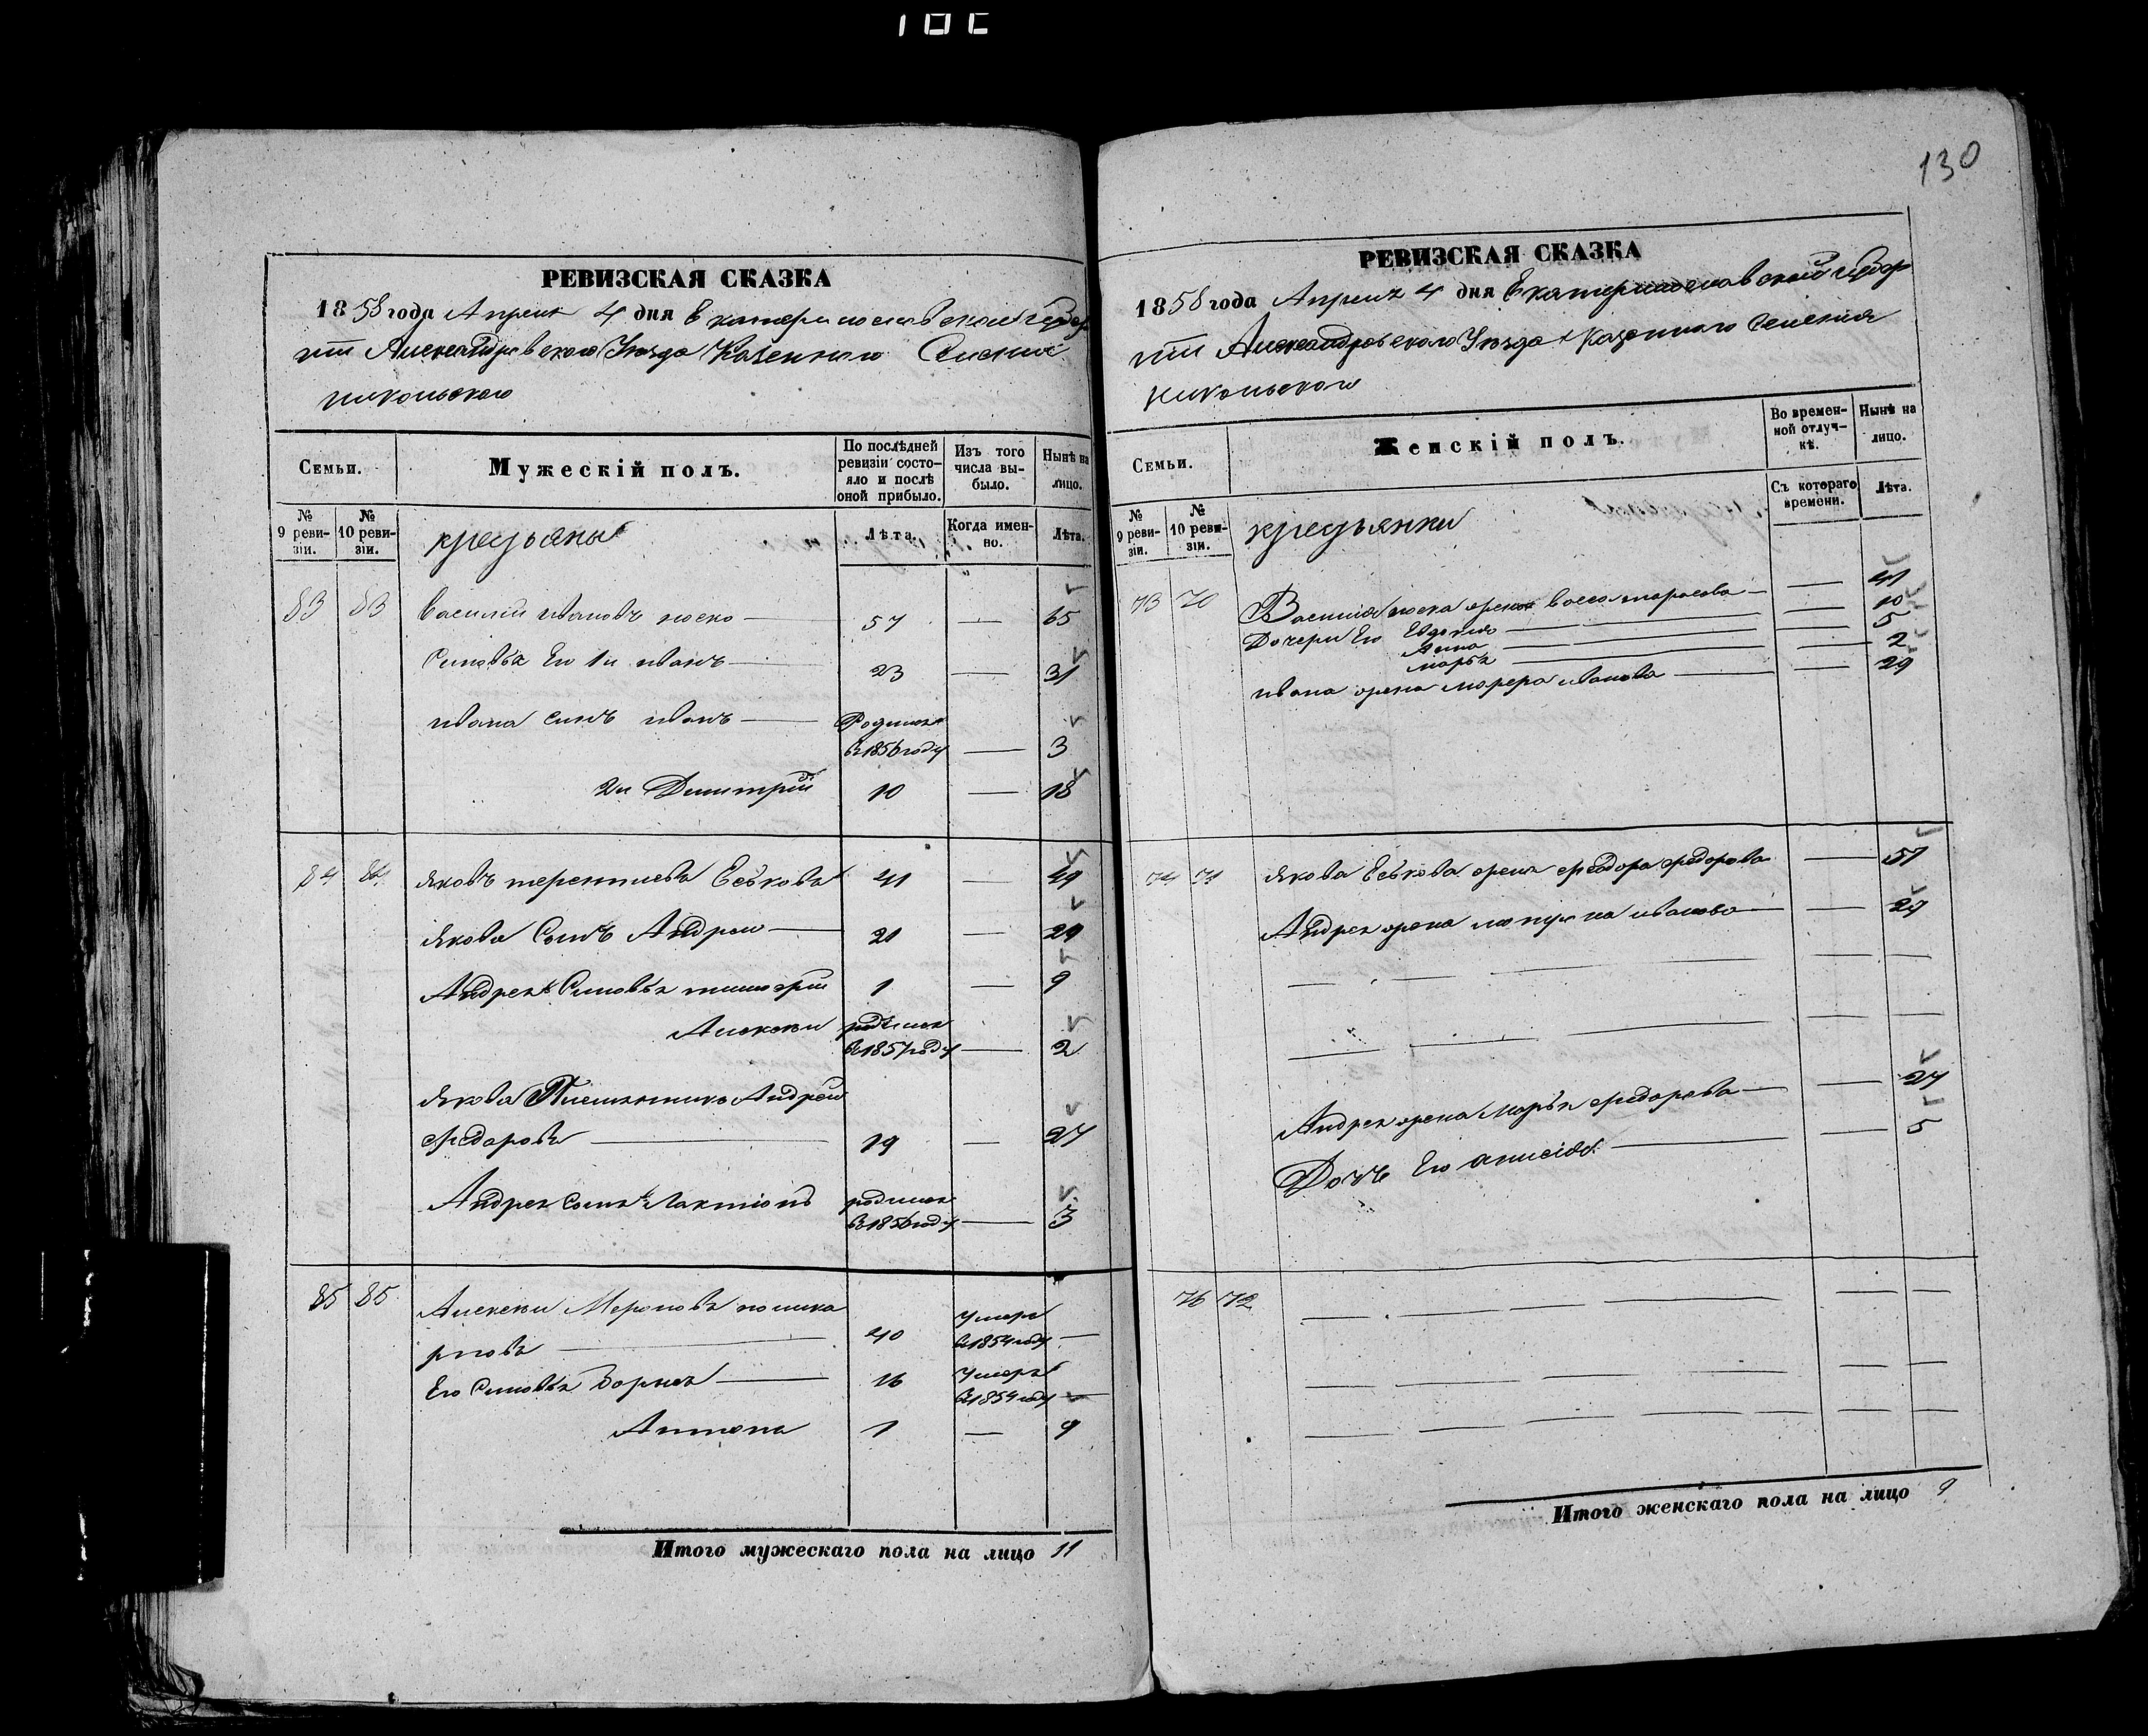 130
РЕВИЗСКАЯ СКАЗКА
1858 года Апреля 4 дня Екатеринославской Губер
нии Александровского Уезда Казенного Селения
Никольского
Семьи.
Мужескій полъ.
По послѣдней ревизіи состо-
яло и послѣ оной прибыло.
Изъ того числа вы-
было.
Нынѣ на лицо.
№ 9 реви-
зіи.
№ 10 реви-
зіи.
кресьяны
Лѣта.
Когда имен-
но.
Лѣта.
83 83 Василий ивановъ носко 57 — 65
Синовья Его 1й иванъ 23 — 31
ивана синъ иванъ Родился
в 1856 году — 3
2й Димитрий 10 — 18
84 84 яковъ терентиевъ Еськова 41 — 49
якова Сынъ Андреи 21 — 29
Андрея Синовья тимофии 1 — 9
Алексеи родился
в 1857 году — 2
якова Племянникъ Андреи
федоровъ 19 — 27
Андрея Сынъ Лактіонъ родился
в 1856 году — 3
85 85 Алексеи Мероновъ
40 Умеръ
в 1854 году —
Его Синовья Борисъ 16 Умеръ
в 1854 году —
Антона 1 — 9
Итого мужескаго пола на лицо 11
РЕВИЗСКАЯ СКАЗКА
1858 года Апреля 4 дня Екатеринославской Губер
нии Александровского Уезда Казенного Селения
Никольского
Семьи.
Женскій полъ.
Во времен-
ной отлуч-
кѣ.
Нынѣ на лицо.
№ 9 реви-
зіи.
№ 10 реви-
зіи.
кресьянки
Съ котораго времени.
Лѣта.
73 70 Василия носка жена тарасова — 41
Дочери Его Евдокия — 10
Анна — 5
марья — 2
ивана жена иванова — 29
74 71 якова Еськова жена федора федорова — 51
Андрея жена иванова — 29
Андрея жена Марья федорова — 27
Дочь Его — 5
76 72
Итого женскаго пола на лицо 9